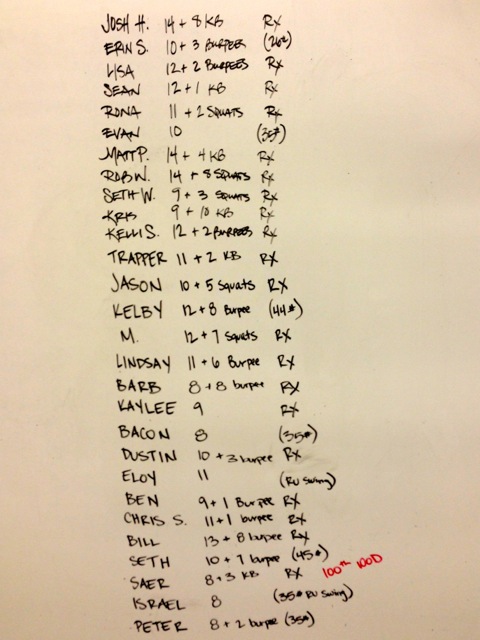 JOSH H. 14 + 8 KB RX
ERIN S. 10 + 3 BURPEES (26#)
LISA 12 + 2 BURPEES RX
SEAN 12 + 1 KB RX
RONA 11 + 2 SQUATS RX
EVAN 10 (35#)
MATT P. 14 + 4 KB RX
ROB W. 14 + 8 SQUATS RX
SETH W. 9 + 3 SQUATS RX
KRIS 9 + 10 KB RX
KELLI S. 12 + 2 BURPEES RX
TRAPPER 11 + 2 KB RX
JASON 10 + 5 Squats RX
KELBY 12 + 8 Burpee (44#)
M. 12 + 7 Squats RX
LINDSAY 11 + 6 Burpee RX
BARB 8 + 8 burpee RX
KAYLEE 9 RX
BACON 8 (35#)
DUSTIN 10 + 3 burpee RX
ELOY 11 (RU Swing)
BEN 9 + 1 Burpee RX
CHRIS S. 11 + 1 burpee RX
BILL 13 + 8 burpee RX
SETH 10 + 7 burpee (45#)
SAER 8 + 3 KB RX 100th WOD
ISRAEL 8 (35# RU Swing)
PETER 8 + 2 burpee (35#)